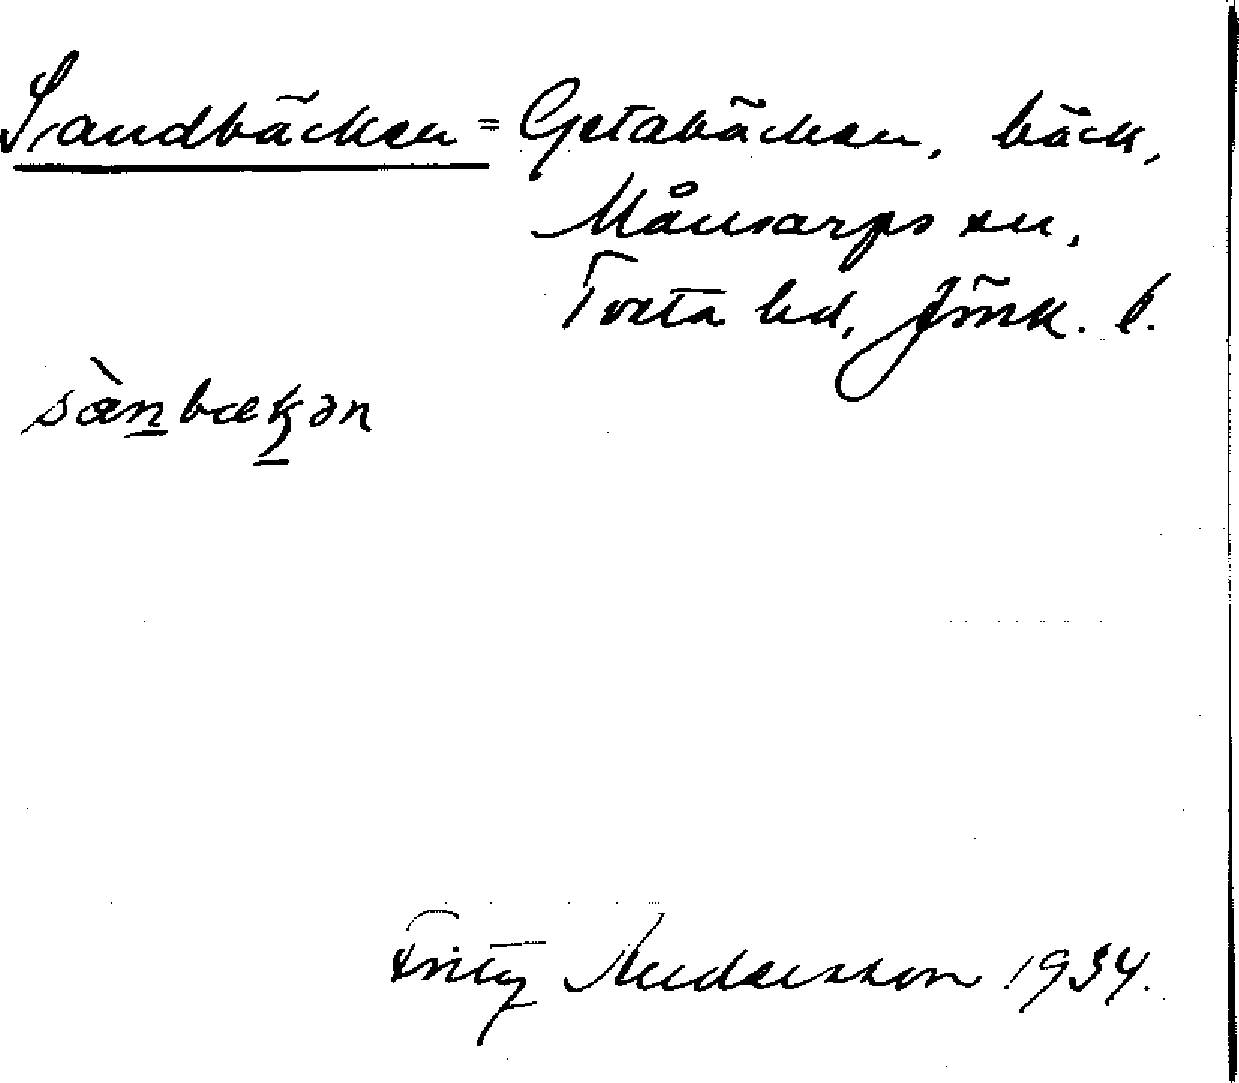 Sandbäcken = Getabäcken, bäck,
Månsarps sn,
Tveta hd, Jönk. l.
sànbækən
Fritz Andersson 1934.